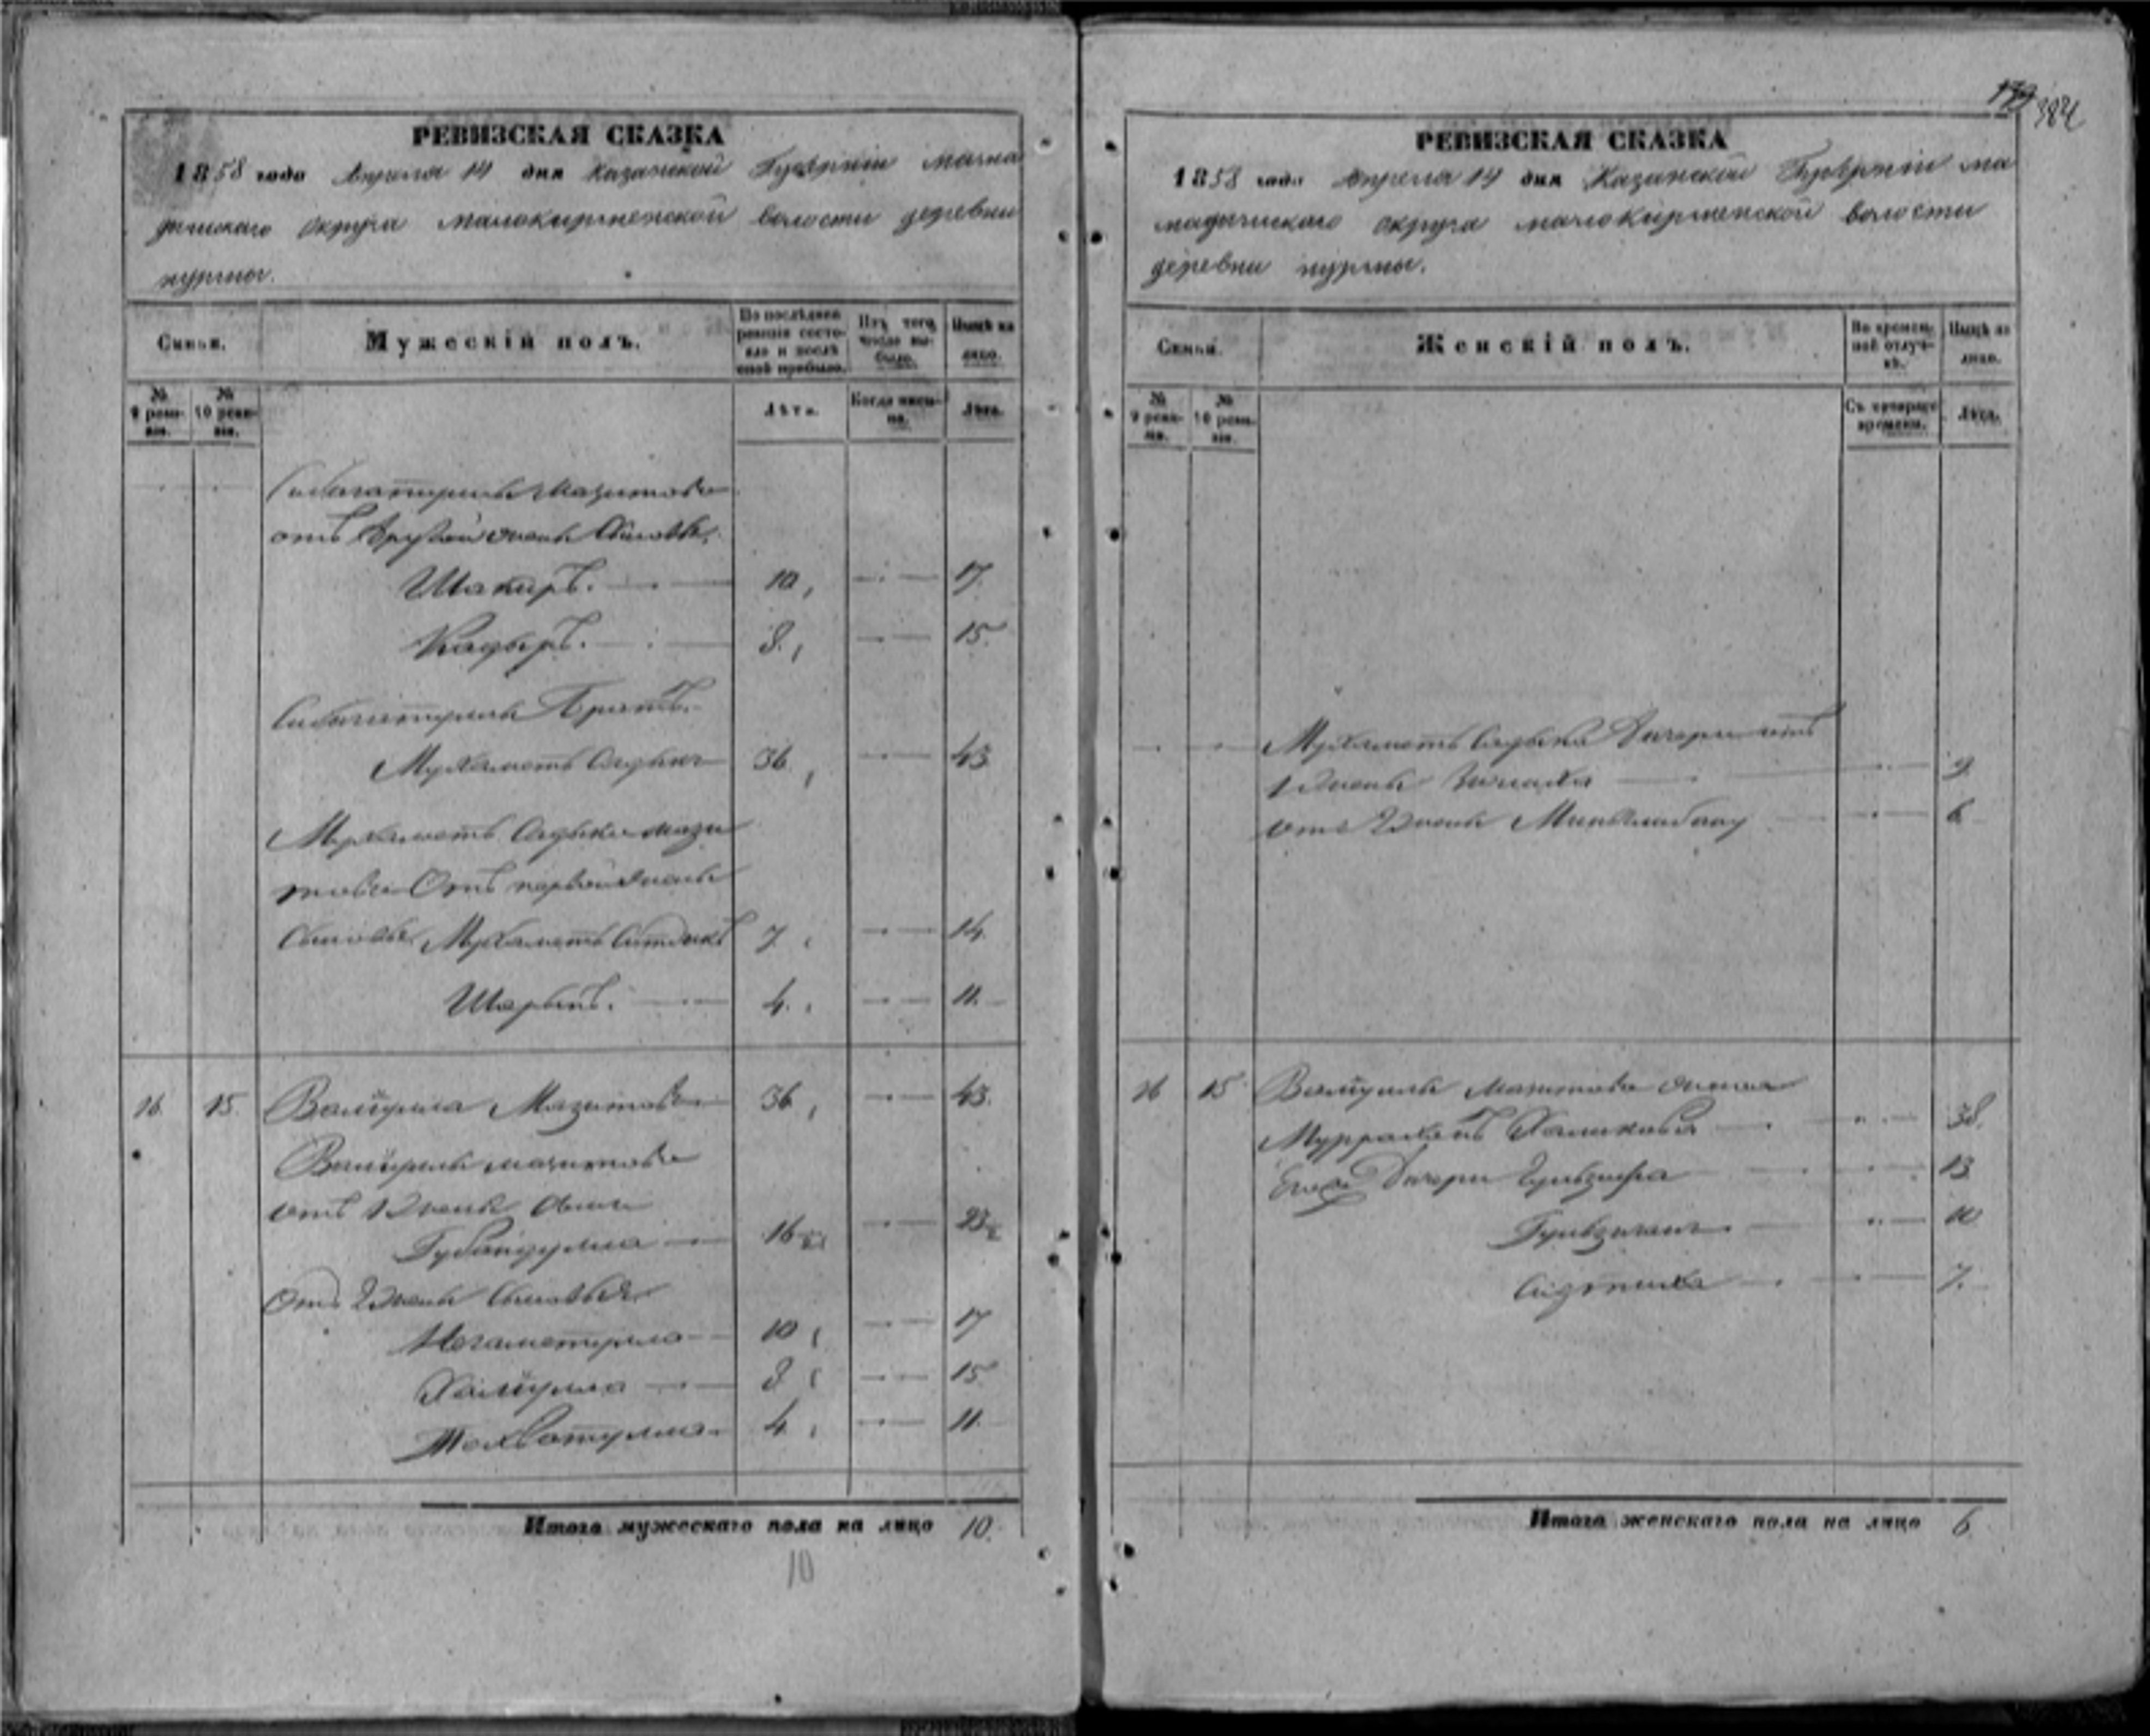 РЕВИЗСКАЯ СКАЗКА
1858 года Апреля 14 дня Казанской Губерніи мама
дышскаго округа малокирменской волости деревни
нурмы.
Семьи. Мужескій полъ. По послѣдней ревизіи состояло и послѣ оной прибыло. Изъ того числа выбыло. Нынѣ на лицо.
№ 9 ревизіи. № 10 ревизіи. Лѣта. Когда именно. Лѣта.
Сибагатуллы Мазитова
отъ другой жены сыновья
Шакиръ. 10 17
Кадыръ. 8. 15.
Сибагатуллы Братъ.
Мухаметь Садыкъ 36. 43
Мухаметь Садыка мази
това Отъ первой жены
сыновья Мухаметь Ситдыкъ 7 14.
Шарыпъ. 4. 11.
16. 15. Валиулла Мазитовъ 36 43.
Валиуллы мазитова
отъ 1 жены сынъ
Губайдулла 16 23
Отъ 2 жены сыновья
Негаметулла 10 17
Халиулла 8 15
4 11
Итого мужескаго пола на лицо 10.
10
384
РЕВИЗСКАЯ СКАЗКА
1858 года Апреля 14 дня Казанской Губерніи ма
мадышскаго округа малокирменской волости
деревни нурмы.
Семьи. Женскій полъ. Во временной отлучкѣ. Нынѣ на лицо.
№ 9 ревизіи. № 10 ревизіи. Съ котораго времени. Лѣта.
Мухаметь Садыка Дочери отъ
1 жены 9.
отъ 2 жены 6
16 15 Валиуллы Мазитова жена
38.
Его Дочери 13
10
7.
Итого женскаго пола на лицо 6